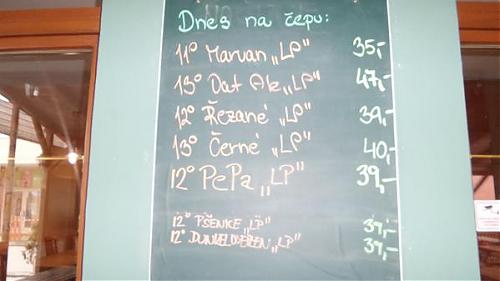 Dnes na čepu:
11° Marvan „LP" 35,-
13° Oat Ale „LP" 47,-
12° Řezané „LP" 39,-
13° Černé „LP" 40,-
12° PePa „LP" 39,-
12° PŠENKE „LP" 39,-
12° DUNKELWEIZEN „LP" 39,-